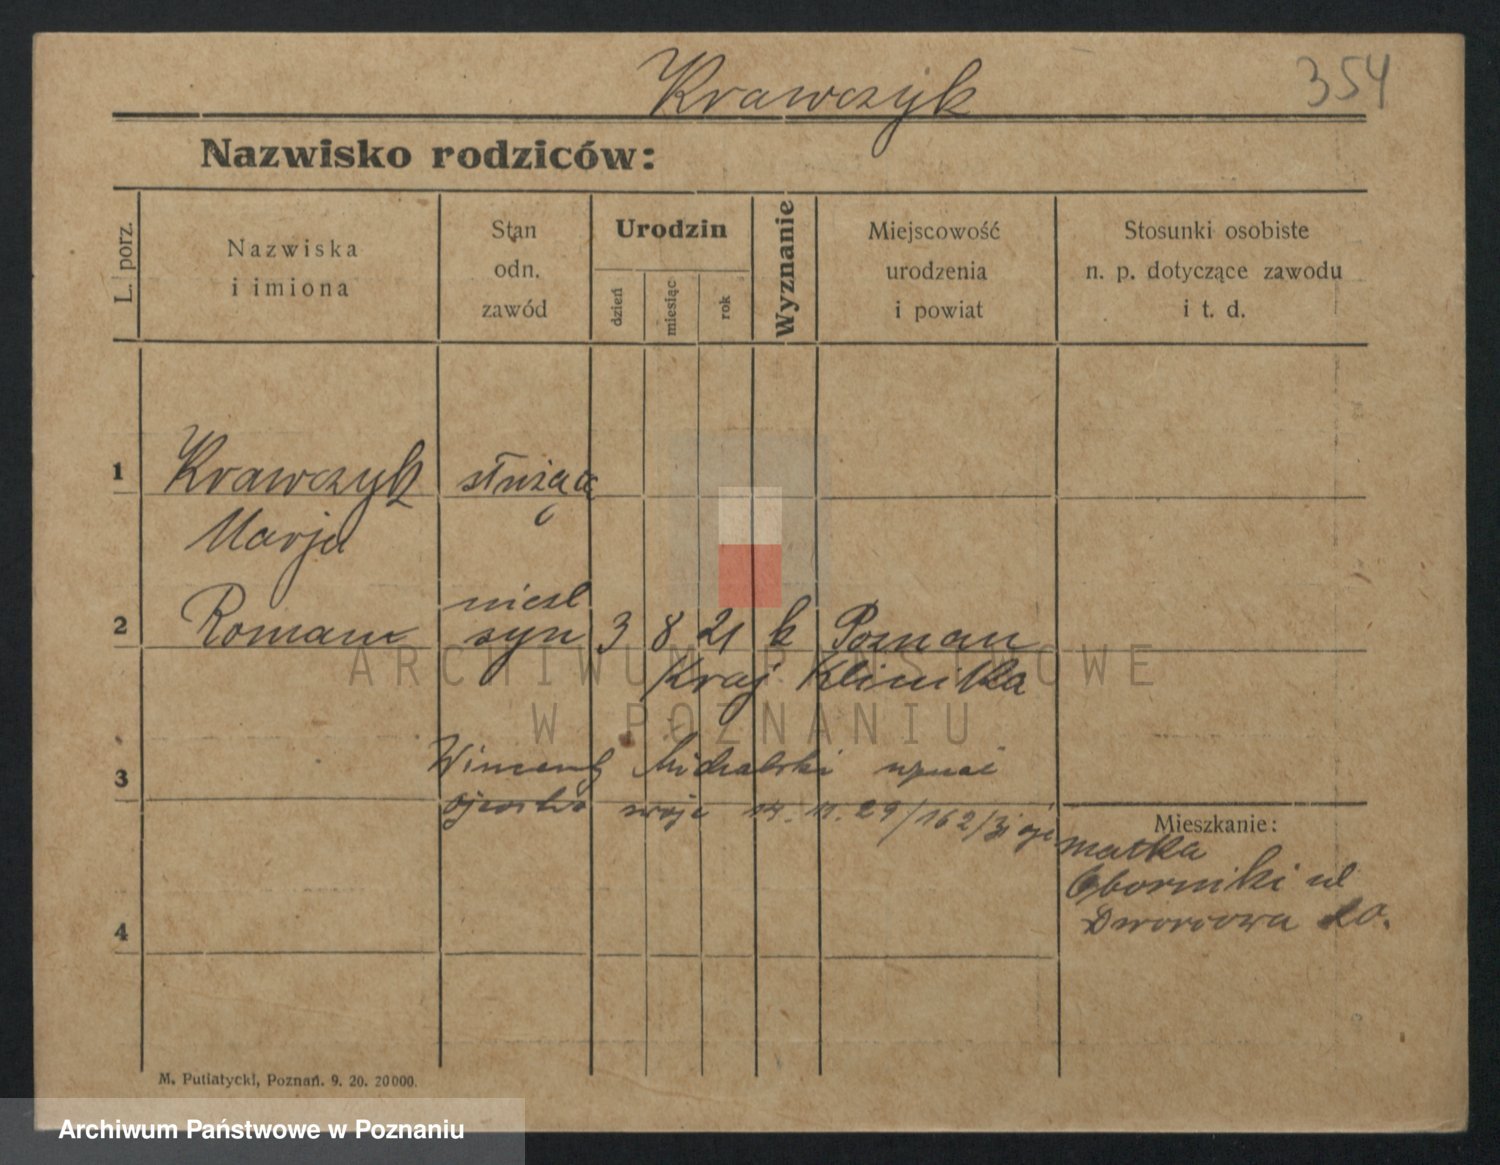 Krawczyk
354
Nazwisko rodziców:
L. porz.
Nazwiska
i imiona
Stan
odn.
zawód
Urodzin
dzień
miesiąc
rok
Wyznanie
Miejscowość
urodzenia
i powiat
Stosunki osobiste
n. p. dotyczące zawodu
i t. d.
1 Krawczyk służąca
Marja
nieśl
2 Roman syn 3 8 21 k Poznan
Kraj Klinika
3
Wincenty Michalski uznał
ojcostwo swoje 14. 11. 29/162/31
Mieszkanie:
matka
Oborniki ul
Dworcowa 20.
4
M. Putiatycki, Poznań. 9. 20. 20000.
ARCHIWUM PAŃSTWOWE
W POZNANIU
Archiwum Państwowe w Poznaniu